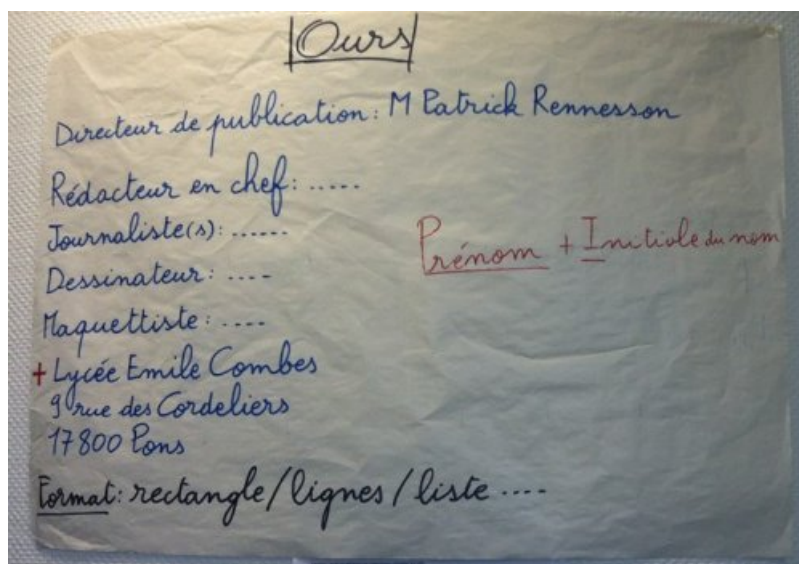 Ours
Directeur de publication: M Patrick Rennesson
Rédacteur en chef: .....
Journaliste(s): ......
Prénom + Initiale du nom
Dessinateur: ....
Maquettiste: ....
+ Lycée Emile Combes
9 rue des Cordeliers
17800 Pons
Format: rectangle/lignes/liste ....